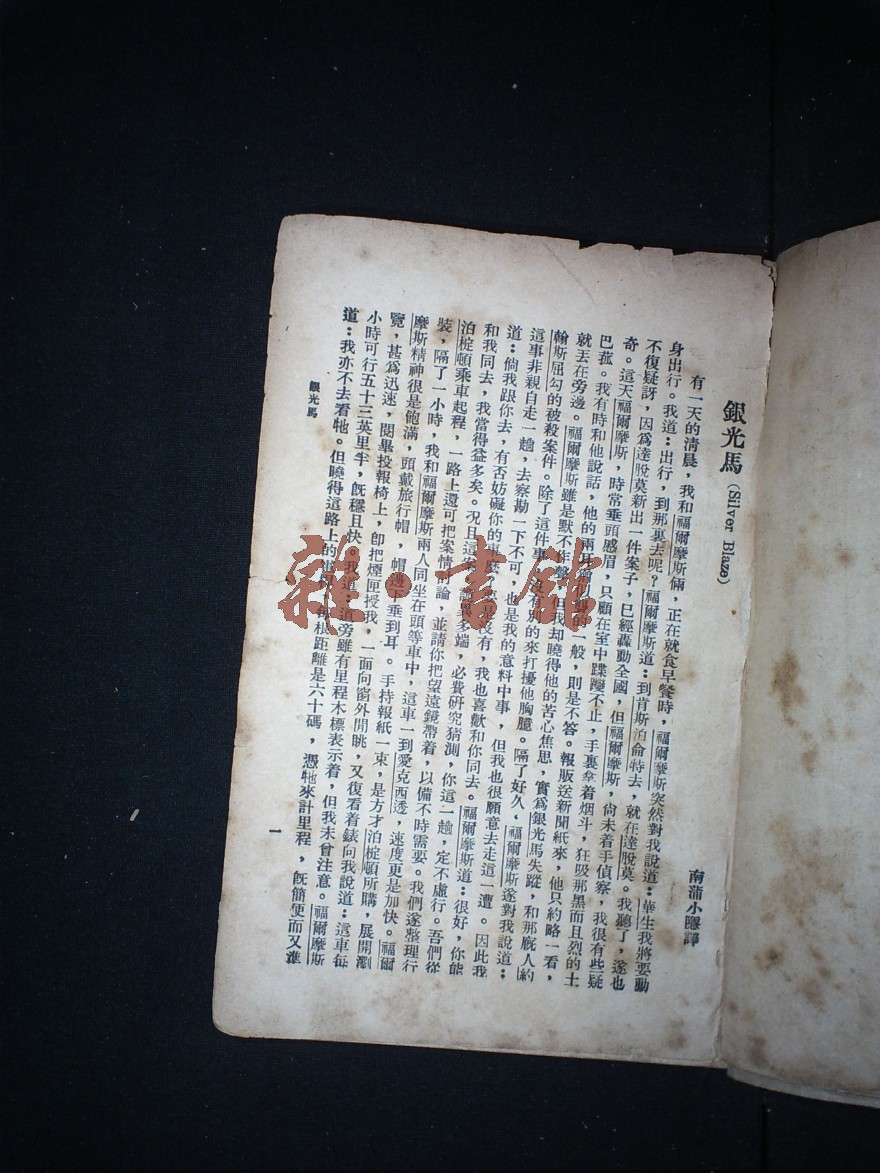 銀光馬 (Silver Blaze)
南蒲小譯
有一天的清晨，我和福爾摩斯倆，正在就食早餐時，福爾摩斯突然對我說道：華生我將要動
身出行。我道：出行，到那裏去呢？福爾摩斯道：到肯斯泊侖特去，就在達脫莫。我聽了，遂也
不復疑訝，因爲達脫莫新出一件案子，已經轟動全國，但福爾摩斯，尙未着手偵察，我很有些疑
奇。這天福爾摩斯，時常垂頭慼眉，只顧在室中蹀躞不止，手裏拿着烟斗，狂吸那黑而且烈的土
巴菰。我有時和他說話，他的兩耳的一般，則是不答。報販送新聞紙來，他只約略一看，
就丟在旁邊。福爾摩斯雖是默不作聲，但我却曉得他的苦心焦思，實爲銀光馬失蹤，和那廐人約
翰斯屈勾的被殺案件。除了這件事，沒有別的來打擾他胸臆。隔了好久，福爾摩斯遂對我說道：
這事非親自走一趟，去察勘一下不可，也是我的意料中事，但我也很願意去走這一遭。因此我
道：倘我跟你去，有否妨礙你的沒有，我也喜歡和你同去。福爾摩斯道：很好，你能
和我同去，我當得益多矣。况且這案異多端，必費研究猜測，你這一趟，定不虛行。吾們從
泊椗頓乘車起程，一路上還可把案情論，並請你把望遠鏡帶着，以備不時需要。我們遂整理行
裝，隔了一小時，我和福爾摩斯兩人同坐在頭等車中，這車一到愛克西透，速度更是加快。福爾
摩斯精神很是飽滿，頭戴旅行帽，帽邊下垂到耳。手持報紙一束，是方才泊椗頓所購，展開瀏
覽，甚爲迅速，閱畢投報椅上，卽把煙匣授我，一面向窗外閒眺，又復看着錶向我說道：這車每
小時可行五十三英里半，旣穩且快。我道：道旁雖有里程木標表示着，但我未曾注意。福爾摩斯
道：我亦不去看牠。但曉得這路上的每根距離是六十碼，憑牠來計里程，旣簡便而又準
銀光馬
一
雜·書館